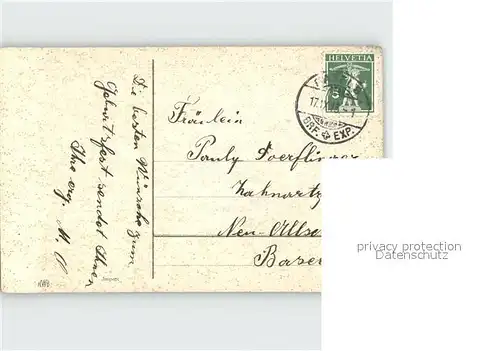 Die besten Wünsche zum
Geburtsfest sendet Ihnen
Ihre erg. M. P.
HELVETIA
5
17.IX.
BRF. EXP.
Fräulein
Pauly Doerflinger
Zahnartz
Neu-Allsc
Basel
privacy protection
Datenschutz